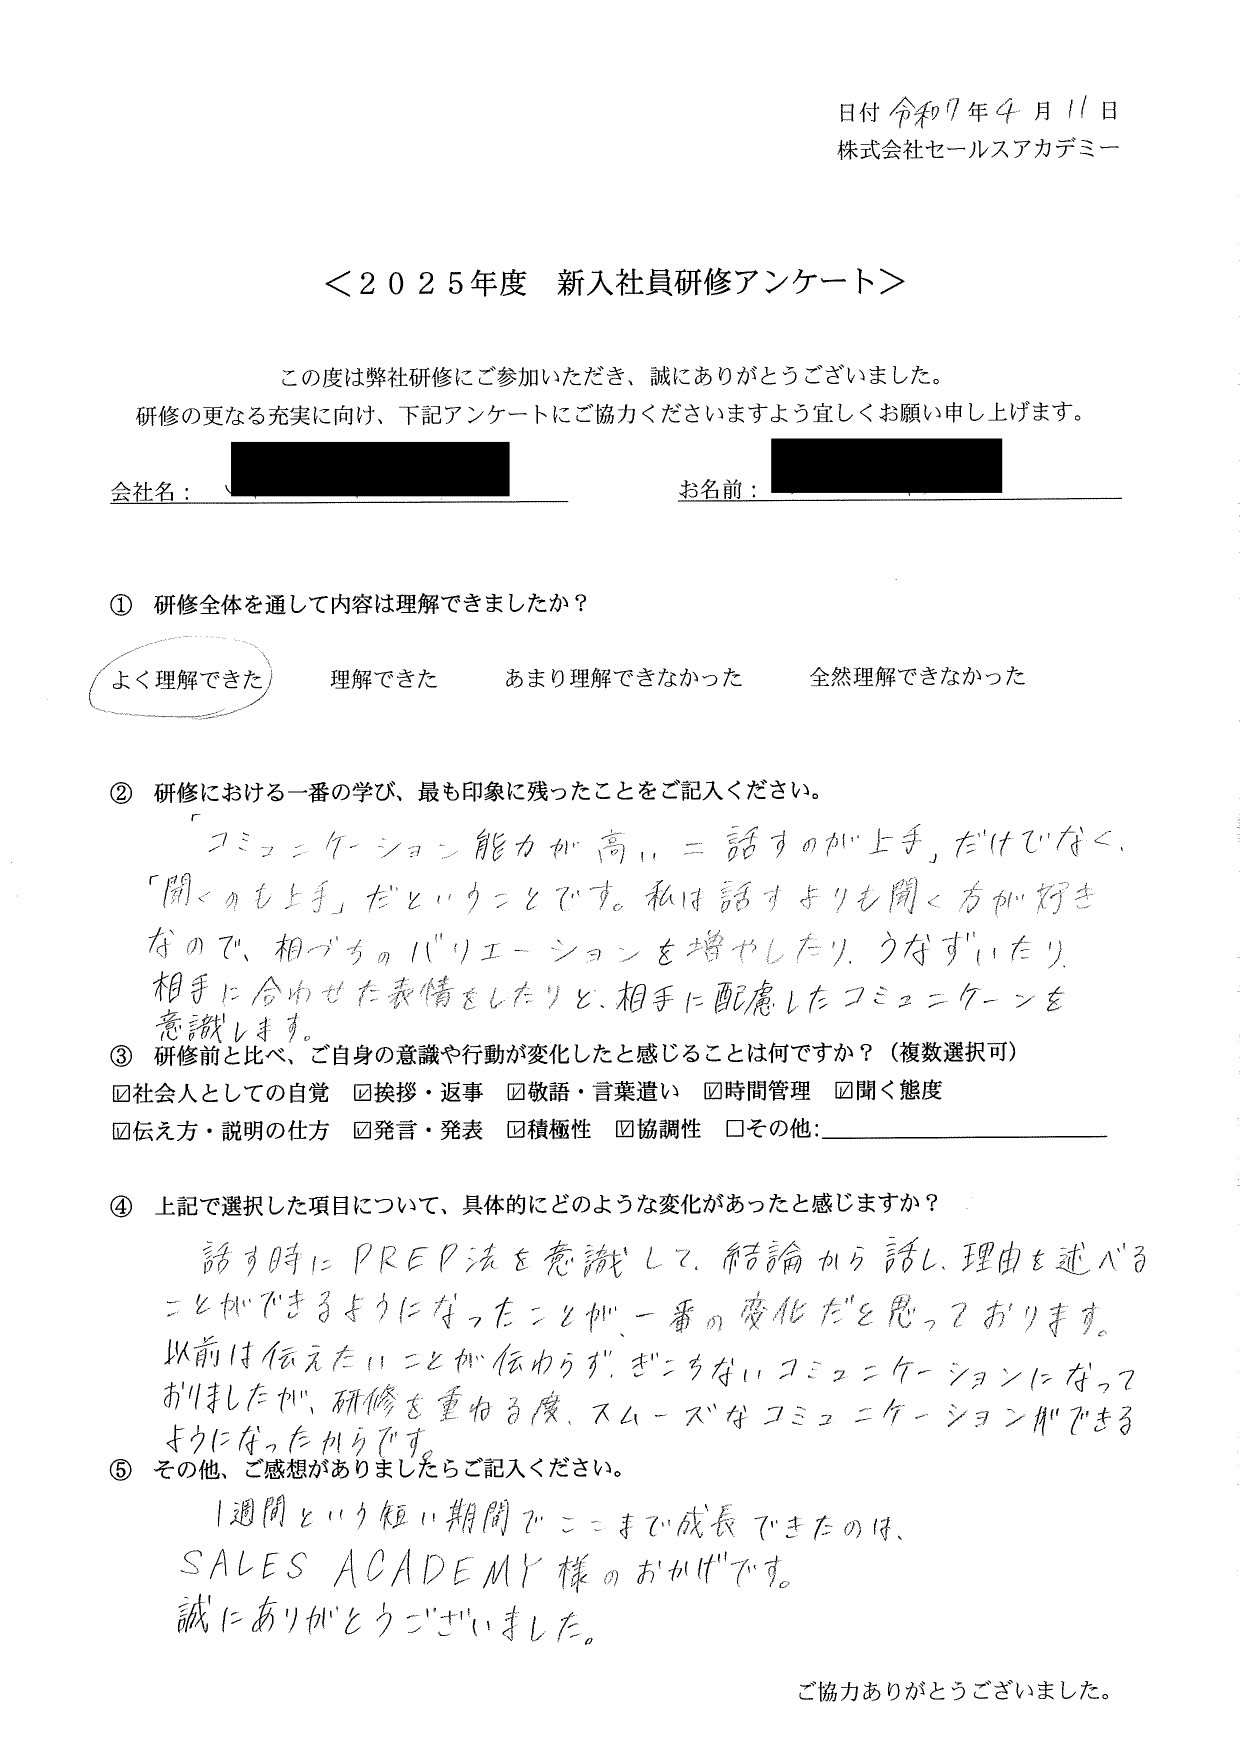 日付 令和7年4月11日
株式会社セールスアカデミー
＜２０２５年度　新入社員研修アンケート＞
この度は弊社研修にご参加いただき、誠にありがとうございました。
研修の更なる充実に向け、下記アンケートにご協力くださいますよう宜しくお願い申し上げます。
会社名：　お名前：
①　研修全体を通して内容は理解できましたか？
よく理解できた　理解できた　あまり理解できなかった　全然理解できなかった
②　研修における一番の学び、最も印象に残ったことをご記入ください。
「コミュニケーション能力が高い＝話すのが上手」だけでなく、
「聞くのも上手」だということです。私は話すよりも聞く方が好き
なので、相づちのバリエーションを増やしたり、うなずいたり、
相手に合わせた表情をしたりと、相手に配慮したコミュニケーンを
意識します。
③　研修前と比べ、ご自身の意識や行動が変化したと感じることは何ですか？（複数選択可）
☑社会人としての自覚　☑挨拶・返事　☑敬語・言葉遣い　☑時間管理　☑聞く態度
☑伝え方・説明の仕方　☑発言・発表　☑積極性　☑協調性　□その他:
④　上記で選択した項目について、具体的にどのような変化があったと感じますか？
話す時にPREP法を意識して、結論から話し、理由を述べる
ことができるようになったことが、一番の変化だと思っております。
以前は伝えたいことが伝わらず、ぎこちないコミュニケーションになって
おりましたが、研修を重ねる度、スムーズなコミュニケーションができる
ようになったからです。
⑤　その他、ご感想がありましたらご記入ください。
1週間という短い期間でここまで成長できたのは、
SALES ACADEMY様のおかげです。
誠にありがとうございました。
ご協力ありがとうございました。